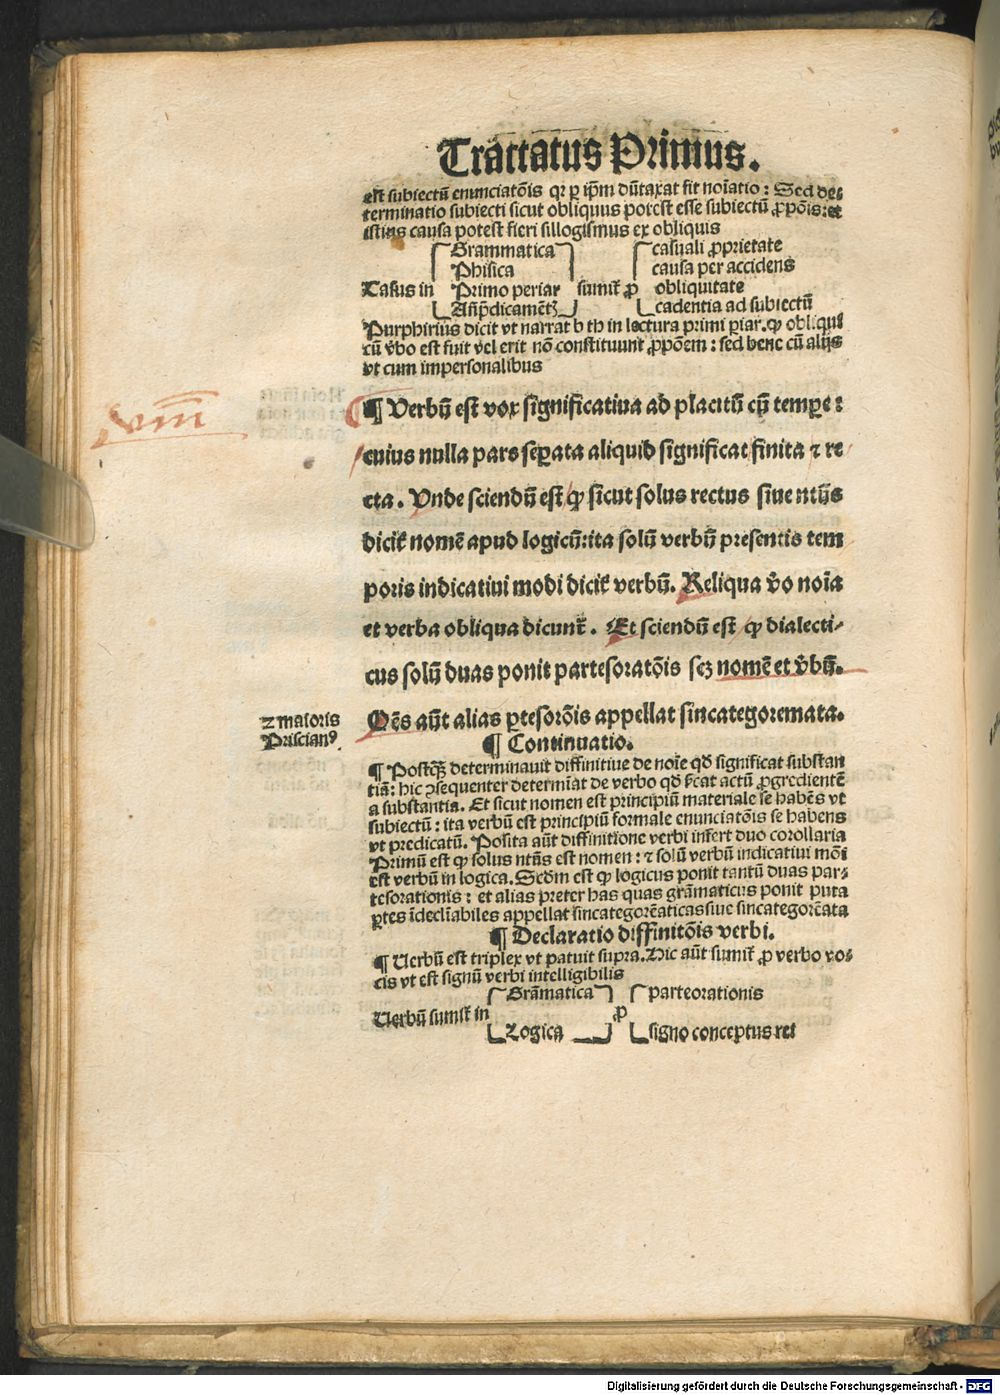 Tractatus Primus.
est subiectū enunciatōis qr ꝑ ip̄m dūtaxat fit noīatio: Sed de⸗
terminatio subiecti sicut obliquus potest esse subiectū ꝓpōis: et
istius causa potest fieri sillogismus ex obliquis
Grammatica casuali ꝓprietate
Phisica causa per accidens
Casus in Primo periar sumit̄ ꝓ obliquitate
Añp̄dicamētꝭ cadentia ad subiectū
Purphirius dicit vt narrat b th in lectura primi ꝑiar. ꝙ obliqui
cū v̄bo est fuit vel erit nō constituunt ꝓpōem: sed bene cū alijs
vt cum impersonalibus
viii
¶ Verbū est vox significatiua ad placitū cū tempꝑe:
cuius nulla pars seꝑata aliquid significat finita ⁊ re
cta. Unde sciendū est ꝙ sicut solus rectus siue ntīs
dicit̄ nomē apud logicū: ita solū verbū presentis tem
poris indicatiui modi dicit̄ verbū. Reliqua v̄o noīa
et verba obliqua dicunt̄. Et sciendū est ꝙ dialecti⸗
cus solū duas ponit partesoratōis scꝫ nomē et v̄bū.
⁊ maioris
Priscianꝰ
Oēs aūt alias ꝑtesorōis appellat sincategoremata.
¶ Continuatio.
¶ Postqꝫ determinauit diffinitiue de noīe qd̄ significat substan
tiā: hic ꝯsequenter determīat de verbo qd̄ s̄cat actū ꝓgredientē
a substantia. Et sicut nomen est principiū materiale se habēs vt
subiectū: ita verbū est principiū formale enunciatōis se habens
vt predicatū. Posita aūt diffinitione verbi infert duo corollaria
Primū est ꝙ solus ntūs est nomen: ⁊ solū verbū indicatiui mōi
est verbū in logica. Scdm est ꝙ logicus ponit tantū duas par⸗
tesorationis: et alias preter has quas grāmaticus ponit puta
ꝑtes īdeclīabiles appellat sincategorēaticas siue sincategorēata
¶ Declaratio diffinitōis verbi.
¶ Uerbū est triplex vt patuit supra. Hic aūt sumit̄ ꝓ verbo vo⸗
cis vt est signū verbi intelligibilis
Grāmatica parteorationis
Uerbū sumit̄ in ꝓ
Logica signo conceptus rei
Digitalisierung gefördert durch die Deutsche Forschungsgemeinschaft - DFG